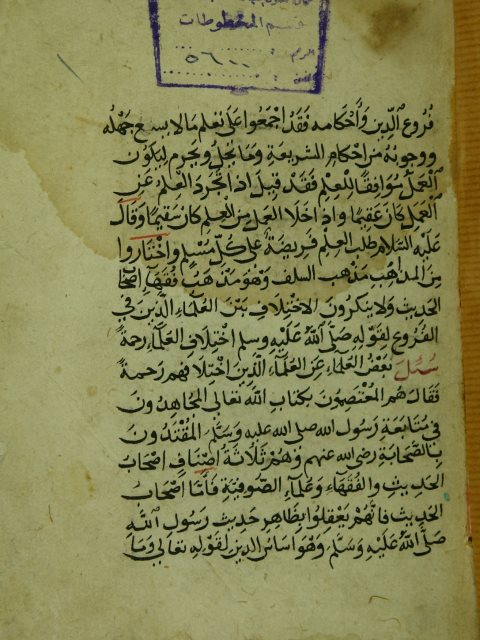 قسم المخطوطات
الرقم :
٥٦٠٠
فروع الدين وأحكامه فقد اجمعوا على تعلم مالا يسع جهله
ووجوبه من احكام الشريعة وما يحل ويحرم ليكون
العمل موافقا للعلم فقد قيل اذا تجرد العلم عن
العمل كان عقيما واذا خلا العمل من العلم كان سقيما وقال
عليه السلام طلب العلم فريضة على كل مسلم واختاروا
من المذاهب مذهب السلف وهو مذهب فقهاء اصحاب
الحديث ولا ينكرون الاختلاف بين العلماء الذين في
الفروع لقوله صلى الله عليه وسلم اختلاف العلماء رحمة
سئل بعض العلماء عن العلماء الذين اختلافهم رحمة
فقال هم المعتصمون بكتاب الله تعالى المجاهدون
في متابعة رسول الله صلى الله عليه وسلم المقتدون
بالصحابة رضى الله عنهم وهم ثلاثة اصناف اصحاب
الحديث والفقهاء وعلماء الصوفية فاما اصحاب
الحديث فانهم يعقلوا بظاهر حديث رسول الله
صلى الله عليه وسلم وهو اساس الدين لقوله تعالى وما